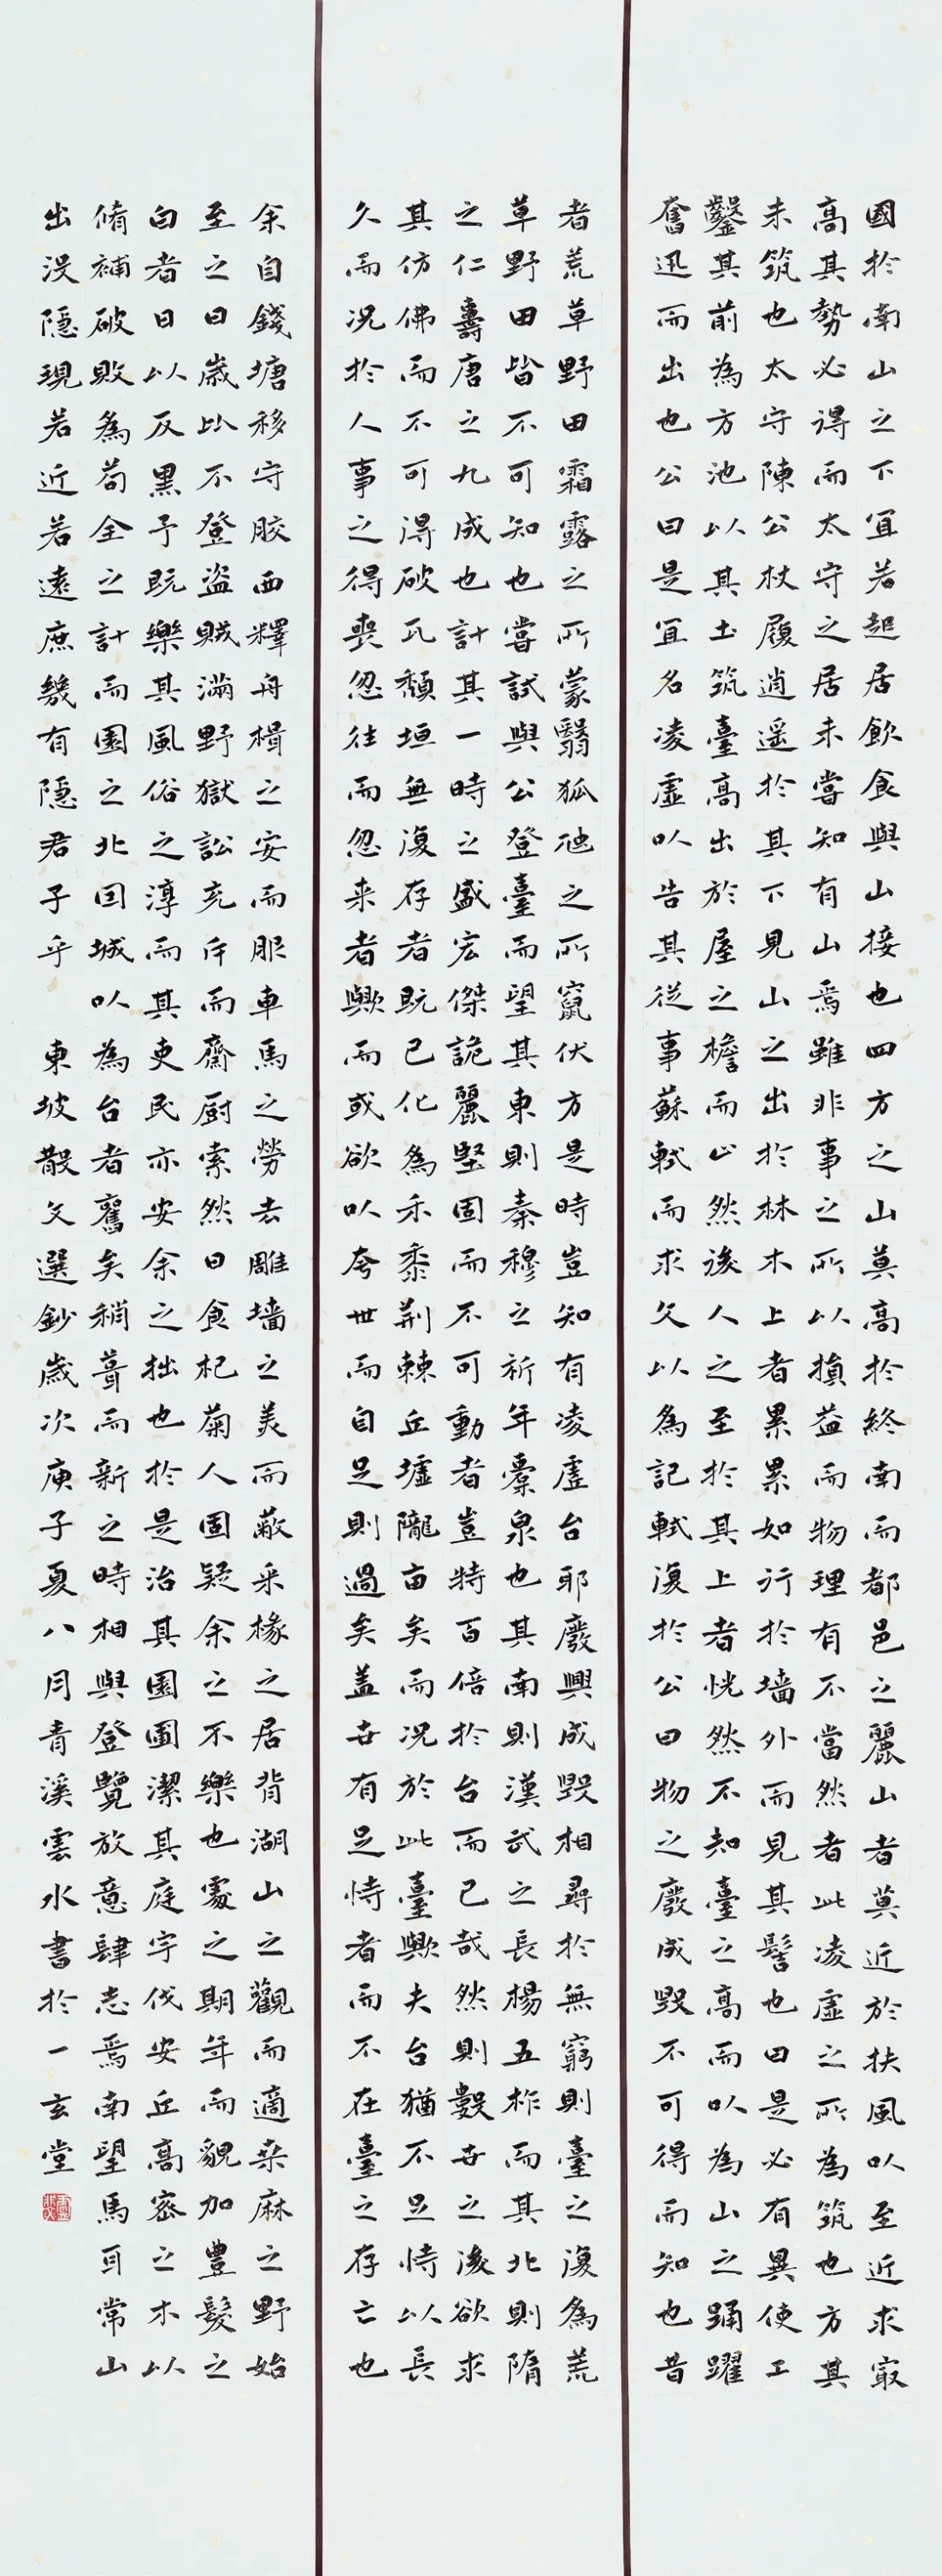 國於南山之下宜若起居飲食與山接也四方之山莫高於終南而都邑之麗山者莫近於扶風以至近求㝡
高其勢必得而太守之居未嘗知有山焉雖非事之所以損益而物理有不當然者此凌虛之所為筑也方其
未筑也太守陳公杖履逍遥於其下見山之出於林木上者累累如行於墻外而見其髻也曰是必有異使工
鑿其前為方池以其土筑臺高出於屋之檐而止然後人之至於其上者恍然不知臺之高而以為山之踊躍
奮迅而出也公曰是宜名凌虛以告其從事蘇軾而求文以為記軾復於公曰物之廢成毀不可得而知也昔
者荒草野田霜露之所蒙翳狐虺之所竄伏方是時豈知有凌虛台耶廢興成毀相尋於無窮則臺之復為荒
草野田皆不可知也嘗試與公登臺而望其東則秦穆之祈年橐泉也其南則漢武之長楊五柞而其北則隋
之仁壽唐之九成也計其一時之盛宏傑詭麗堅固而不可動者豈特百倍於台而已哉然則數世之後欲求
其仿佛而不可得破瓦頹垣無復存者既已化為禾黍荆棘丘墟隴亩矣而况於此臺歟夫台猶不足恃以長
久而况於人事之得喪忽往而忽来者歟而或欲以夸世而自足則過矣盖世有足恃者而不在臺之存亡也
余自錢塘移守胶西釋舟楫之安而服車馬之勞去雕墙之美而蔽采椽之居背湖山之觀而適桑麻之野始
至之日歲比不登盗贼滿野獄訟充斥而齋厨索然日食杞菊人固疑余之不樂也處之期年而貌加豊髮之
白者日以反黑予既樂其風俗之淳而其吏民亦安余之拙也於是治其園圃潔其庭宇伐安丘高密之木以
脩補破敗為苟全之計而園之北因城以為台者舊矣稍葺而新之時相與登覽放意肆志焉南望馬耳常山
出没隱現若近若遠庶幾有隱君子乎 東坡散文選鈔歲次庚子夏八月青溪雲水書於一玄堂